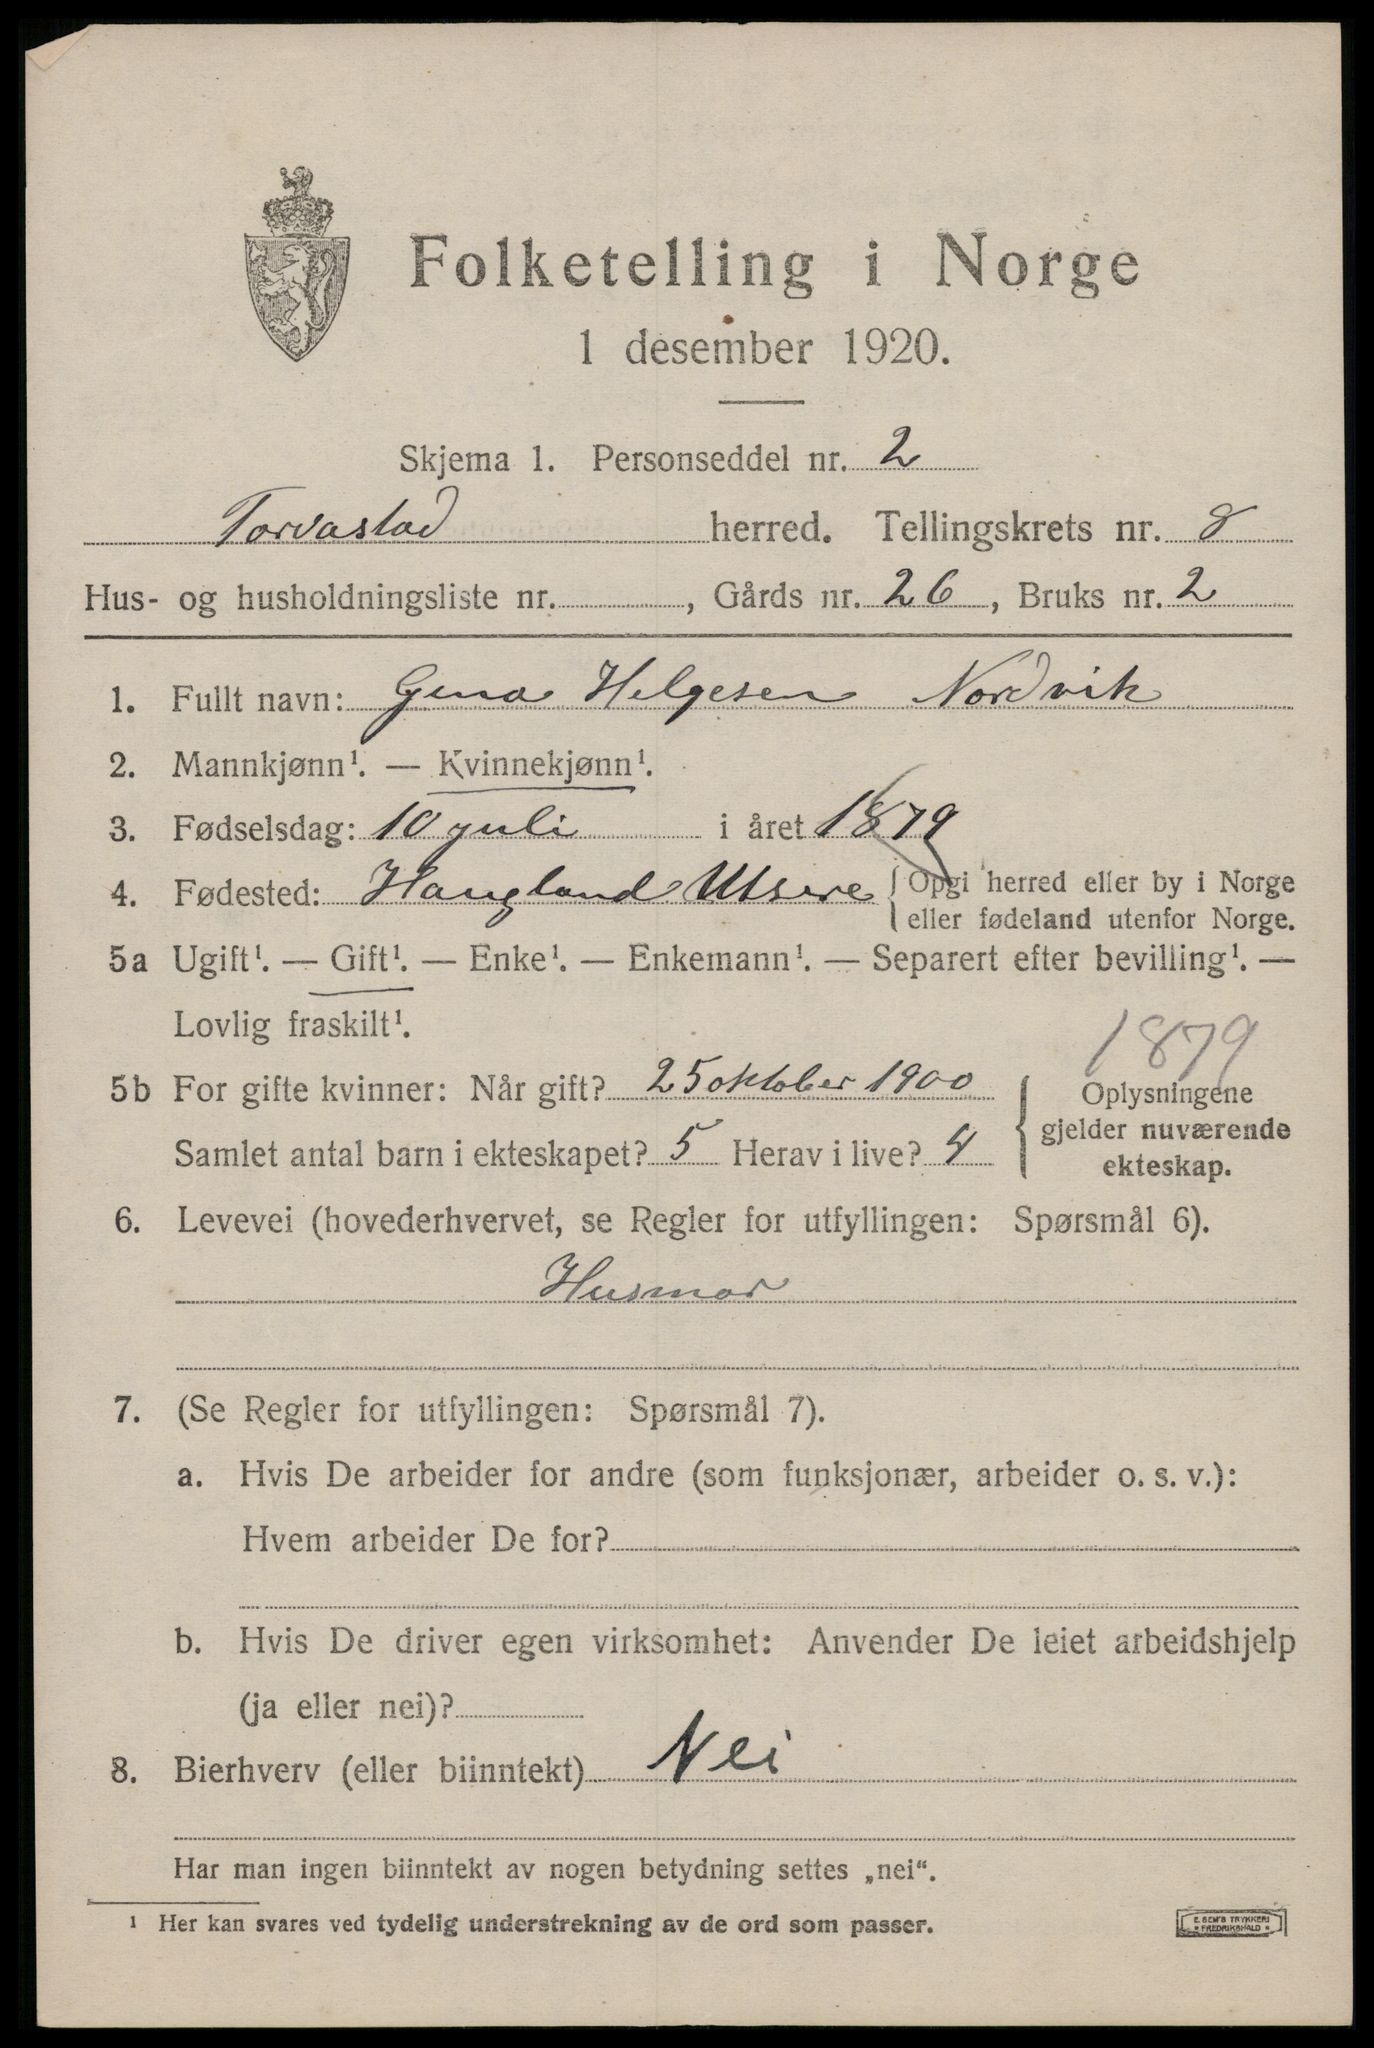 Folketelling i Norge
1 desember 1920.
Skjema 1. Personseddel nr. 2
Torvastad herred. Tellingskrets nr. 8
Hus- og husholdningsliste nr. , Gårds nr. 26, Bruks nr. 2
1. Fullt navn: Gina Helgesen Nordvik
2. Mannkjønn¹. — Kvinnekjønn¹.
3. Fødselsdag: 10 juli i året 1879
4. Fødested: Haugland Utsire { Opgi herred eller by i Norge
eller fødeland utenfor Norge.
5a Ugift¹. — Gift¹. — Enke¹. — Enkemann¹. — Separert efter bevilling¹. —
Lovlig fraskilt¹.
1879
5b For gifte kvinner: Når gift? 25 oktober 1900
Samlet antal barn i ekteskapet? 5 Herav i live? 4
{ Oplysningene
gjelder nuværende
ekteskap.
6. Levevei (hovederhvervet, se Regler for utfyllingen: Spørsmål 6).
Husmor
7. (Se Regler for utfyllingen: Spørsmål 7).
a. Hvis De arbeider for andre (som funksjonær, arbeider o. s. v.):
Hvem arbeider De for?
b. Hvis De driver egen virksomhet: Anvender De leiet arbeidshjelp
(ja eller nei)?
8. Bierhverv (eller biinntekt) Nei
Har man ingen biinntekt av nogen betydning settes „nei“.
¹ Her kan svares ved tydelig understrekning av de ord som passer.
E. SEM'S TRYKKERI
* FREDRIKSHALD *